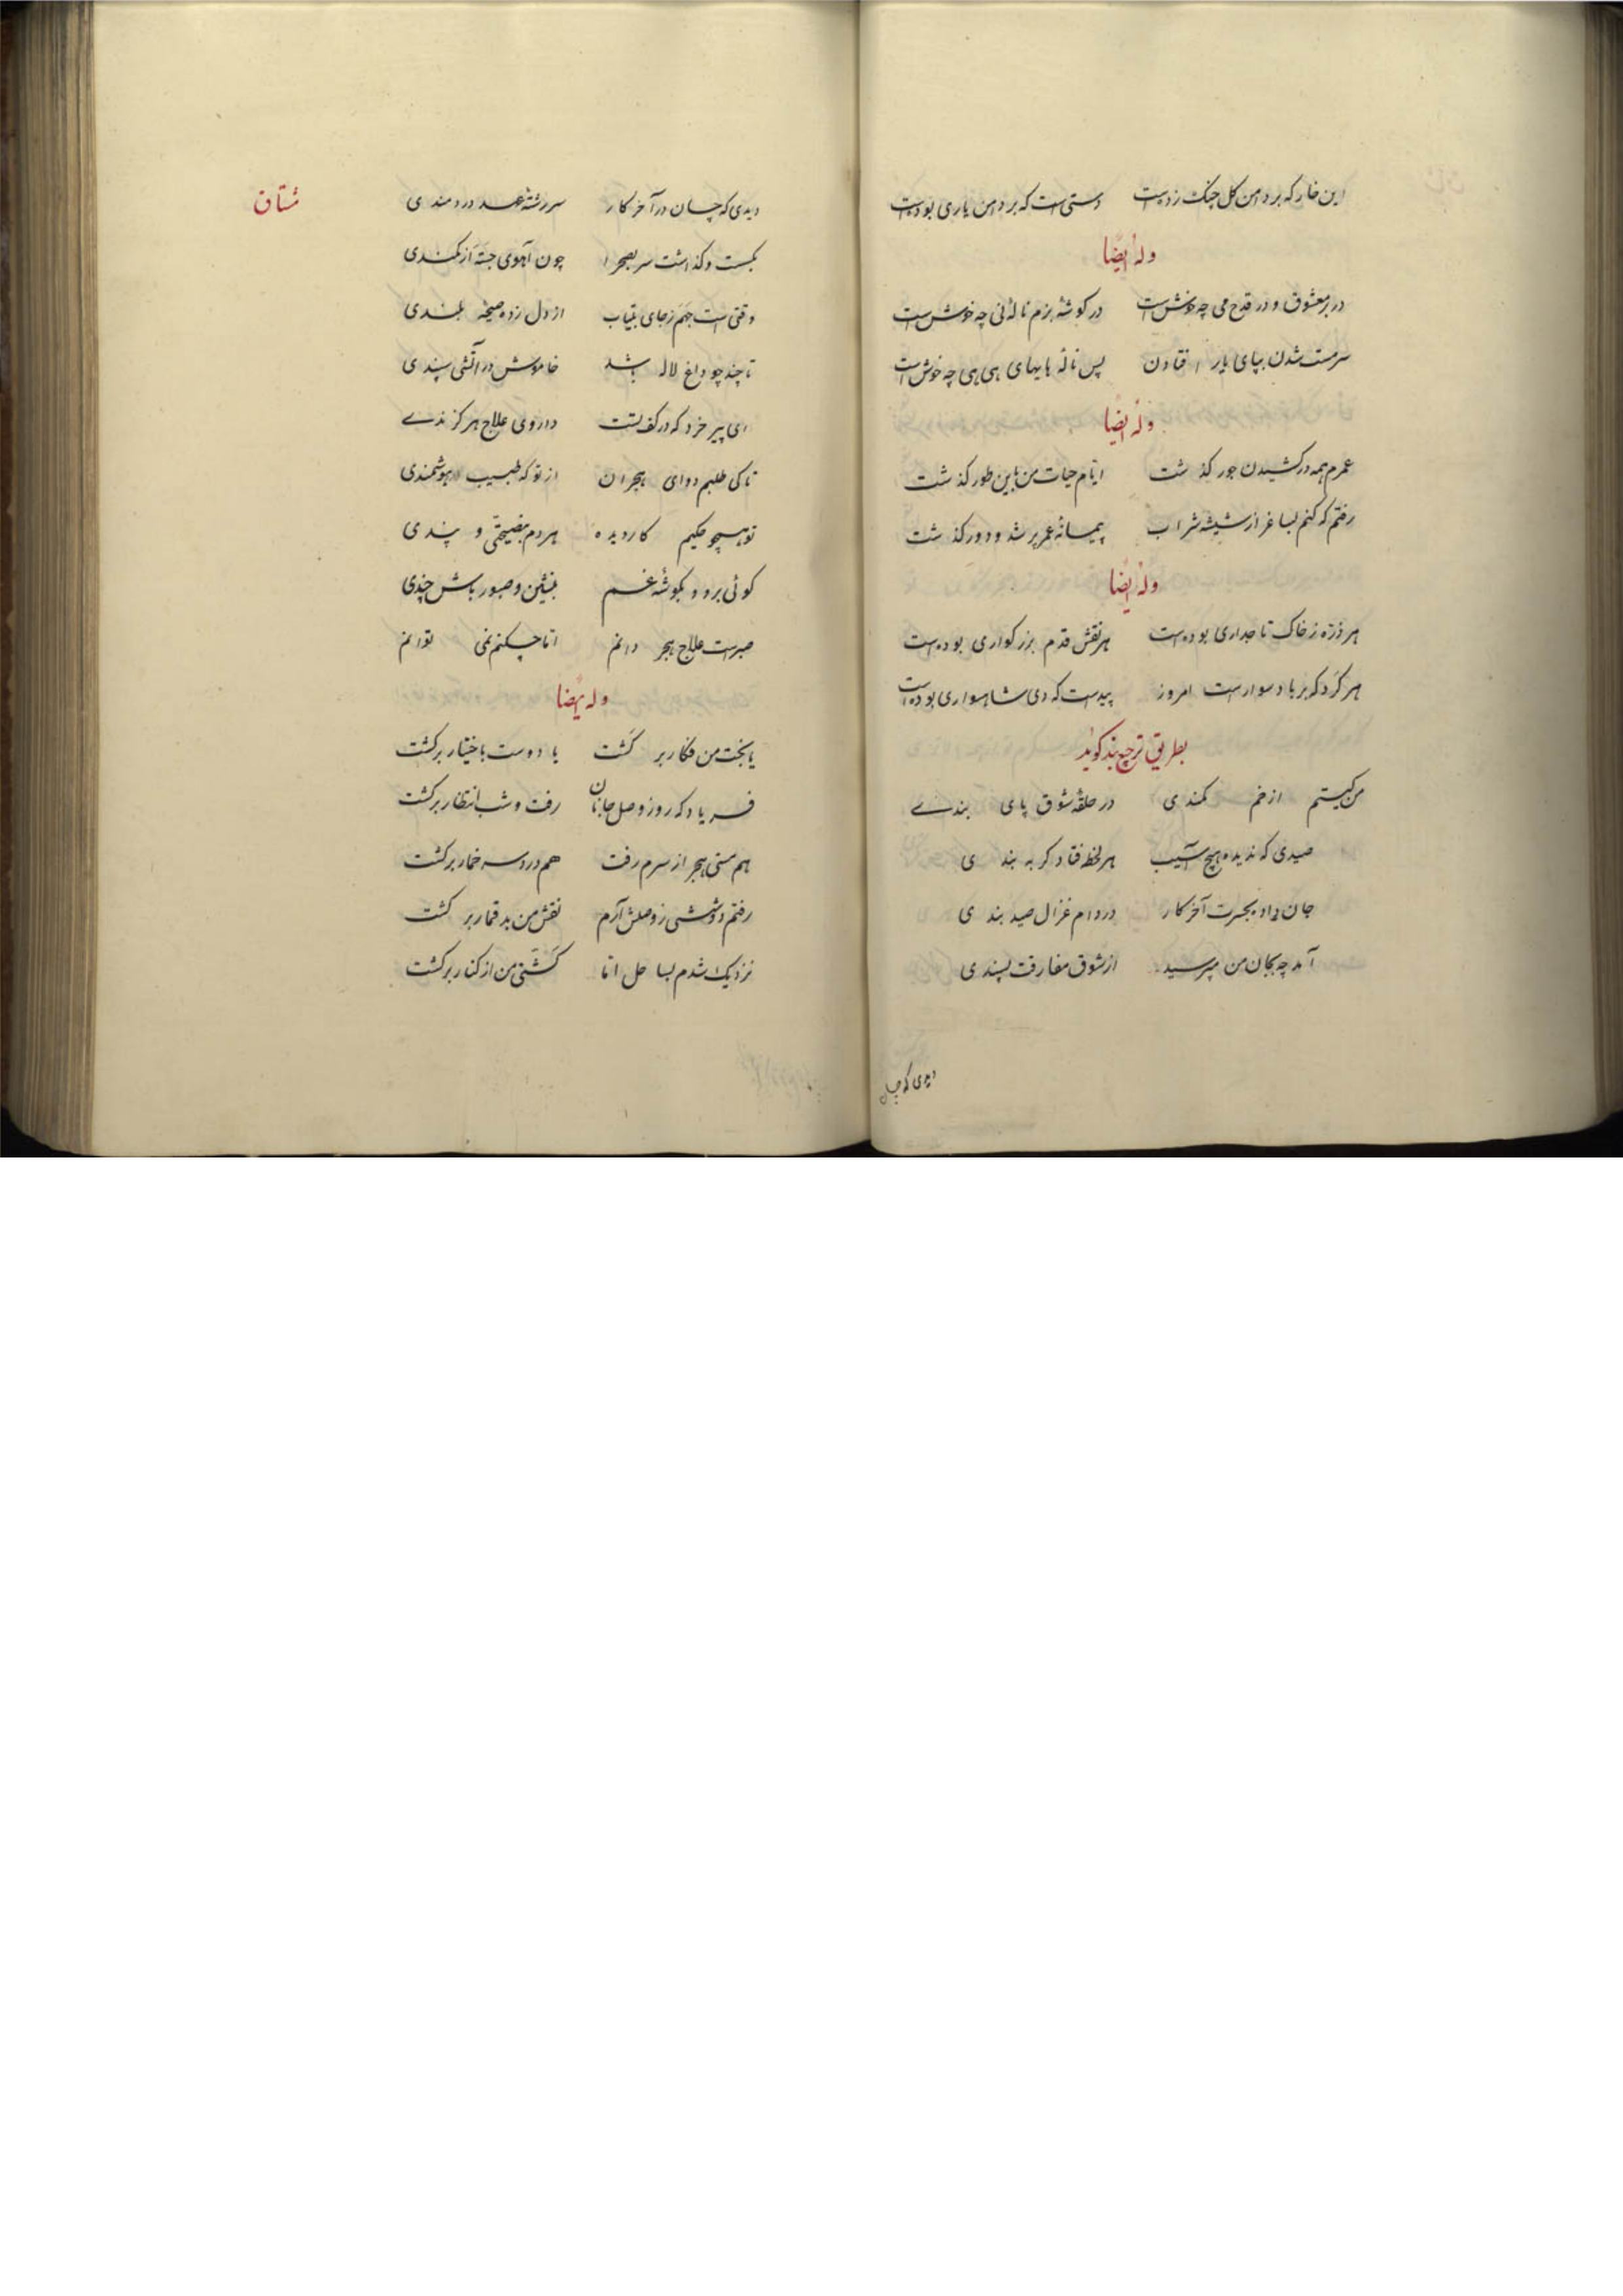 این خار که بر دامن کل چنک زدست دستی است که بر دامن یاری بودست
وله ایضًا
در بر معشوق و در قدح می چه خوش است در کوشهٔ بزم نالهٔ نی چه خوش است
سرمست شدن بپای یار افتادن پس نالهٔ هایهای هی هی چه خوش است
وله ایضًا
عمرم همه در کشیدن جور کذشت ایام حیات من باین طور کذشت
رفتم که کنم بساغر از شیشه شراب پیمانهٔ عمر پر شد و دور کذشت
وله ایضًا
هر ذرّه ز خاک تاجداری بودست هر نقش قدم بزرکواری بودست
هر کرد که بر باد سوارست امروز پیدست که دی شاهسواری بودست
بطریق ترجیع بند کوید
من کیستم از خم کمندی در حلقهٔ شوق پای بندے
صیدی که ندیده هیچ آسیب هر لحظه فتاد کر به بندی
جان داد بحسرت آخر کار در دام غزال صید بندی
آمد چه بجان من مپرسید از شوق مفارقت پسندی
دیدی که چسان
مشتاق
دیدی که چسان در آخر کار سر رشتهٔ عهد دردمندی
بکست و کذاشت سر بصحرا چون آهوی جسته از کمندی
وقتی است جهم ز جای بیتاب از دل زده صیحهٔ بلندی
تا چند چو داغ لاله باشد خاموش در آتشی سپندی
ای پیر خرد که در کف تست داروی علاج هر کزندے
تا کی طلبم دوای هجران از تو که طبیب هوشمندی
تو همچو حکیم کار دیده هر دم بنصیحتی و پندی
کوئی برو و بکوشهٔ غم بنشین و صبور باش چندی
صبرست علاج هجر دانم اما چکنم نمی توانم
وله ایضًا
یا بخت من فکار برکشت یا دوست باختیار برکشت
فریاد که روز وصل جانان رفت و شب انتظار برکشت
هم مستی هجر از سرم رفت هم درد سر خمار برکشت
رفتم دو ششی ز وصلش آرم نقش من بد قمار برکشت
نزدیک شدم بساحل اما کشتی من از کنار برکشت